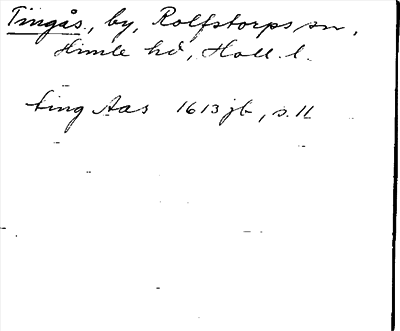 Tingås, by, Rolfstorps sn,
Himle hd, Hall. l.
ting Aas 1613 jb, s. 11